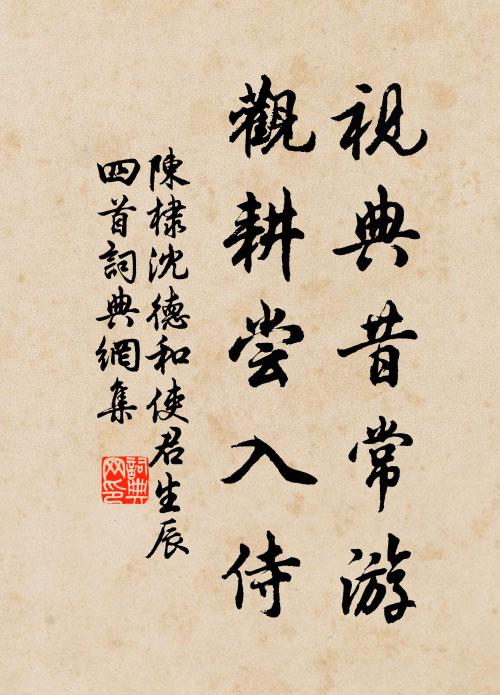 視典昔常游
觀耕尝入侍
陳棣沈德和使君生辰
四首詞典網集
詞典网印